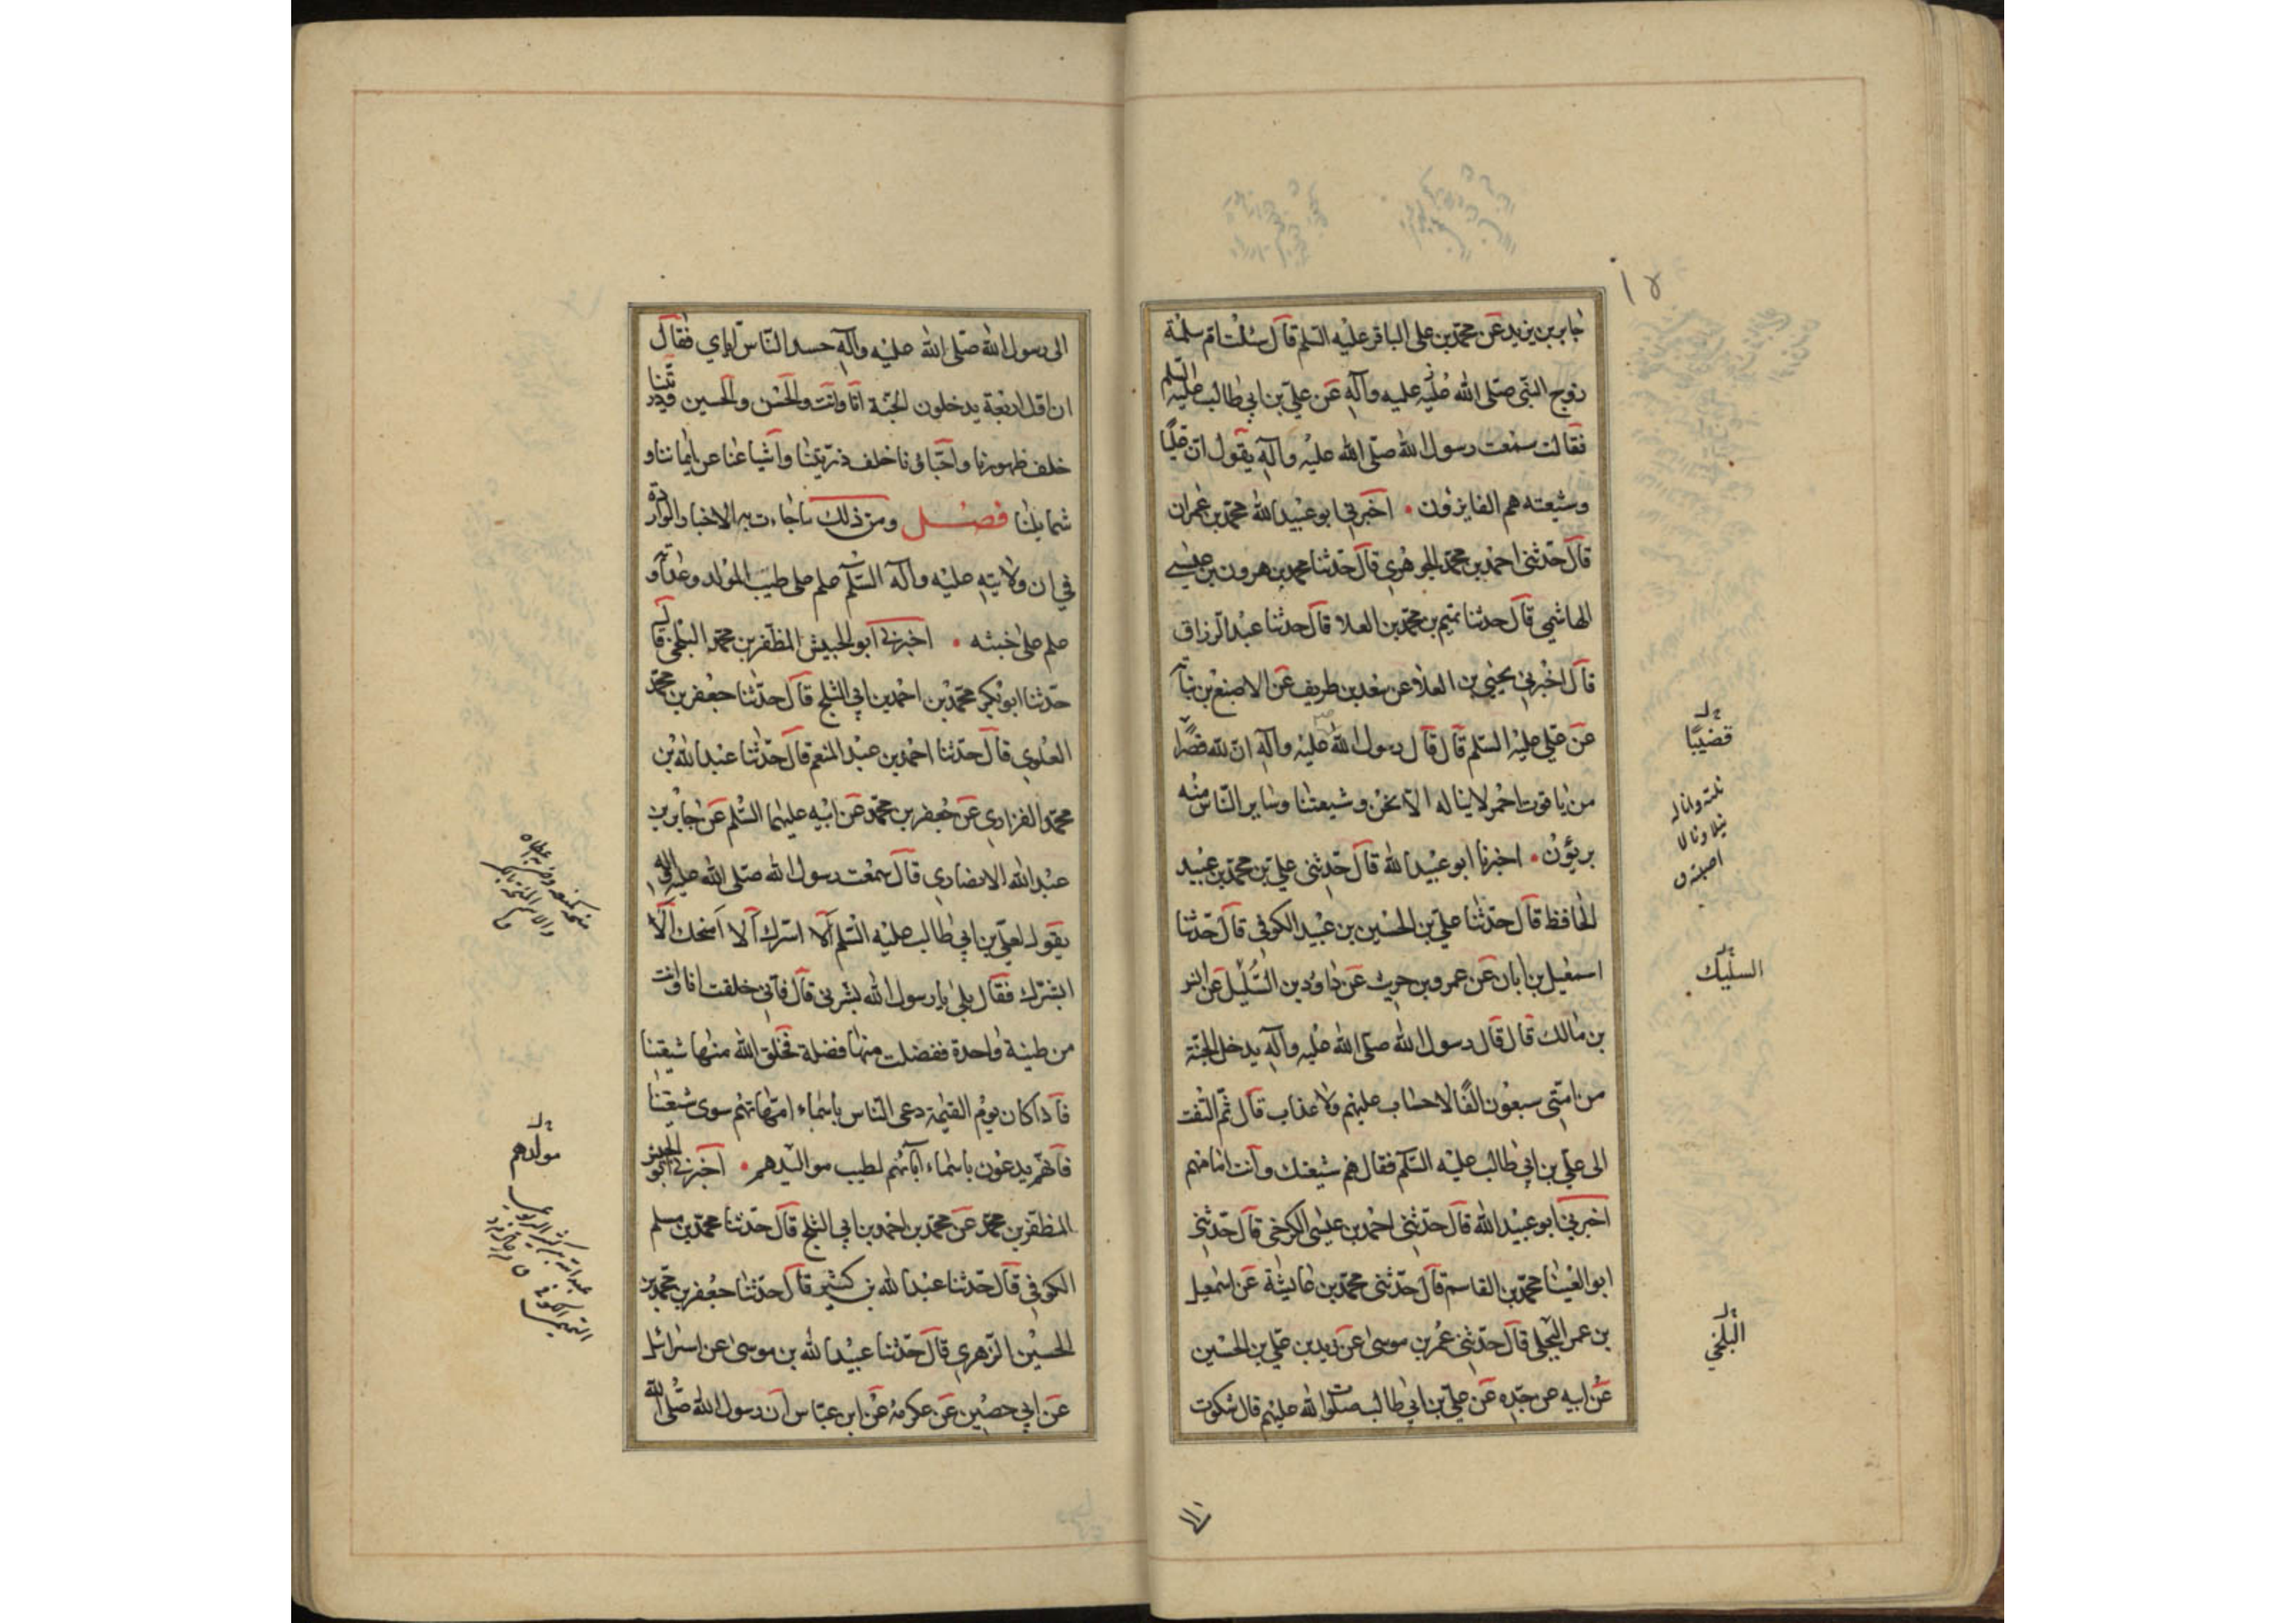 جابر بن يزيد عن محمد بن علي الباقر عليه السلم قال سئلت ام سلمة
زوج النبي صلى الله عليه وآله عن علي بن ابي طالب عليه السلم
فقالت سمعت رسول الله صلى الله عليه وآله يقول ان عليا
وشيعته هم الفايزون اخبرني ابو عبيد الله محمد بن عمران
قال حدثني احمد بن محمد الجوهري قال حدثنا محمد بن هرون بن عيسى
الهاشمي قال حدثنا تميم بن محمد بن العلا قال حدثنا عبد الرزاق
قال اخبرني يحيى بن العلا عن سعد بن طريف عن الاصبغ بن نباته
عن علي عليه السلم قال قال رسول الله عليه وآله ان لله قصرا
من ياقوت احمر لا يناله الا نحن وشيعتنا وساير الناس منه
بريؤن اخبرنا ابو عبيد الله قال حدثني علي بن محمد بن عبيد
الحافظ قال حدثنا علي بن الحسين بن عبيد الكوفي قال حدثنا
اسمعيل بن ابان عن عمرو بن حريث عن داود بن السليل عن انس
بن مالك قال قال رسول الله صلى الله عليه وآله يدخل الجنة
من امتي سبعون الفا لا حساب عليهم ولا عذاب قال ثم التفت
الى علي بن ابي طالب عليه السلم فقال هم شيعتك وانت امامهم
اخبرني ابو عبيد الله قال حدثني احمد بن عيسى الكرخي قال حدثني
ابو العينا محمد بن القاسم قال حدثني محمد بن عايشة عن اسمعيل
بن عمر البجلي قال حدثني عمر بن موسى عن زيد بن علي بن الحسين
عن ابيه عن جده عن علي بن ابي طالب صلوات الله عليهم قال شكوت
قضيبا
السليك
البلخي
الى رسول الله صلى الله عليه وآله حسد الناس اياي فقال
ان اول اربعة يدخلون الجنة انا وانت والحسن والحسين وذريتنا
خلف ظهورنا واحباؤنا خلف ذريتنا واشياعنا عن ايماننا و
شمايلنا فصل ومن ذلك ما جاءت به الاخبار الواردة
في ان ولايته عليه وآله السلم علم على طيب المولد وعداوته
علم على خبثه اخبرني ابو الجيش المظفر بن محمد البلخي قال
حدثنا ابو بكر محمد بن احمد بن ابي الثلج قال حدثنا جعفر بن محمد
العلوي قال حدثنا احمد بن عبد المنعم قال حدثنا عبد الله بن
محمد الفزاري عن جعفر بن محمد عن ابيه عليهما السلم عن جابر بن
عبد الله الانصاري قال سمعت رسول الله صلى الله عليه وآله
يقول لعلي بن ابي طالب عليه السلم الا اسرك الا امنحك الا
ابشرك فقال بلى يا رسول الله بشرني قال فاني خلقت انا وانت
من طينة واحدة ففضلت منها فضلة فخلق الله منها شيعتنا
فاذا كان يوم القيمة دعى الناس باسماء امهاتهم سوى شيعتنا
فانهم يدعون باسماء آبائهم لطيب مواليدهم اخبرني ابو الجيش
المظفر بن محمد عن محمد بن احمد بن ابي الثلج قال حدثنا محمد بن مسلم
الكوفي قال حدثنا عبد الله بن كثير قال حدثنا جعفر بن محمد بن
الحسين الزهري قال حدثنا عبيد الله بن موسى عن اسرائيل
عن ابي حصين عن عكرمة عن ابن عباس ان رسول الله صلى الله
مولدهم